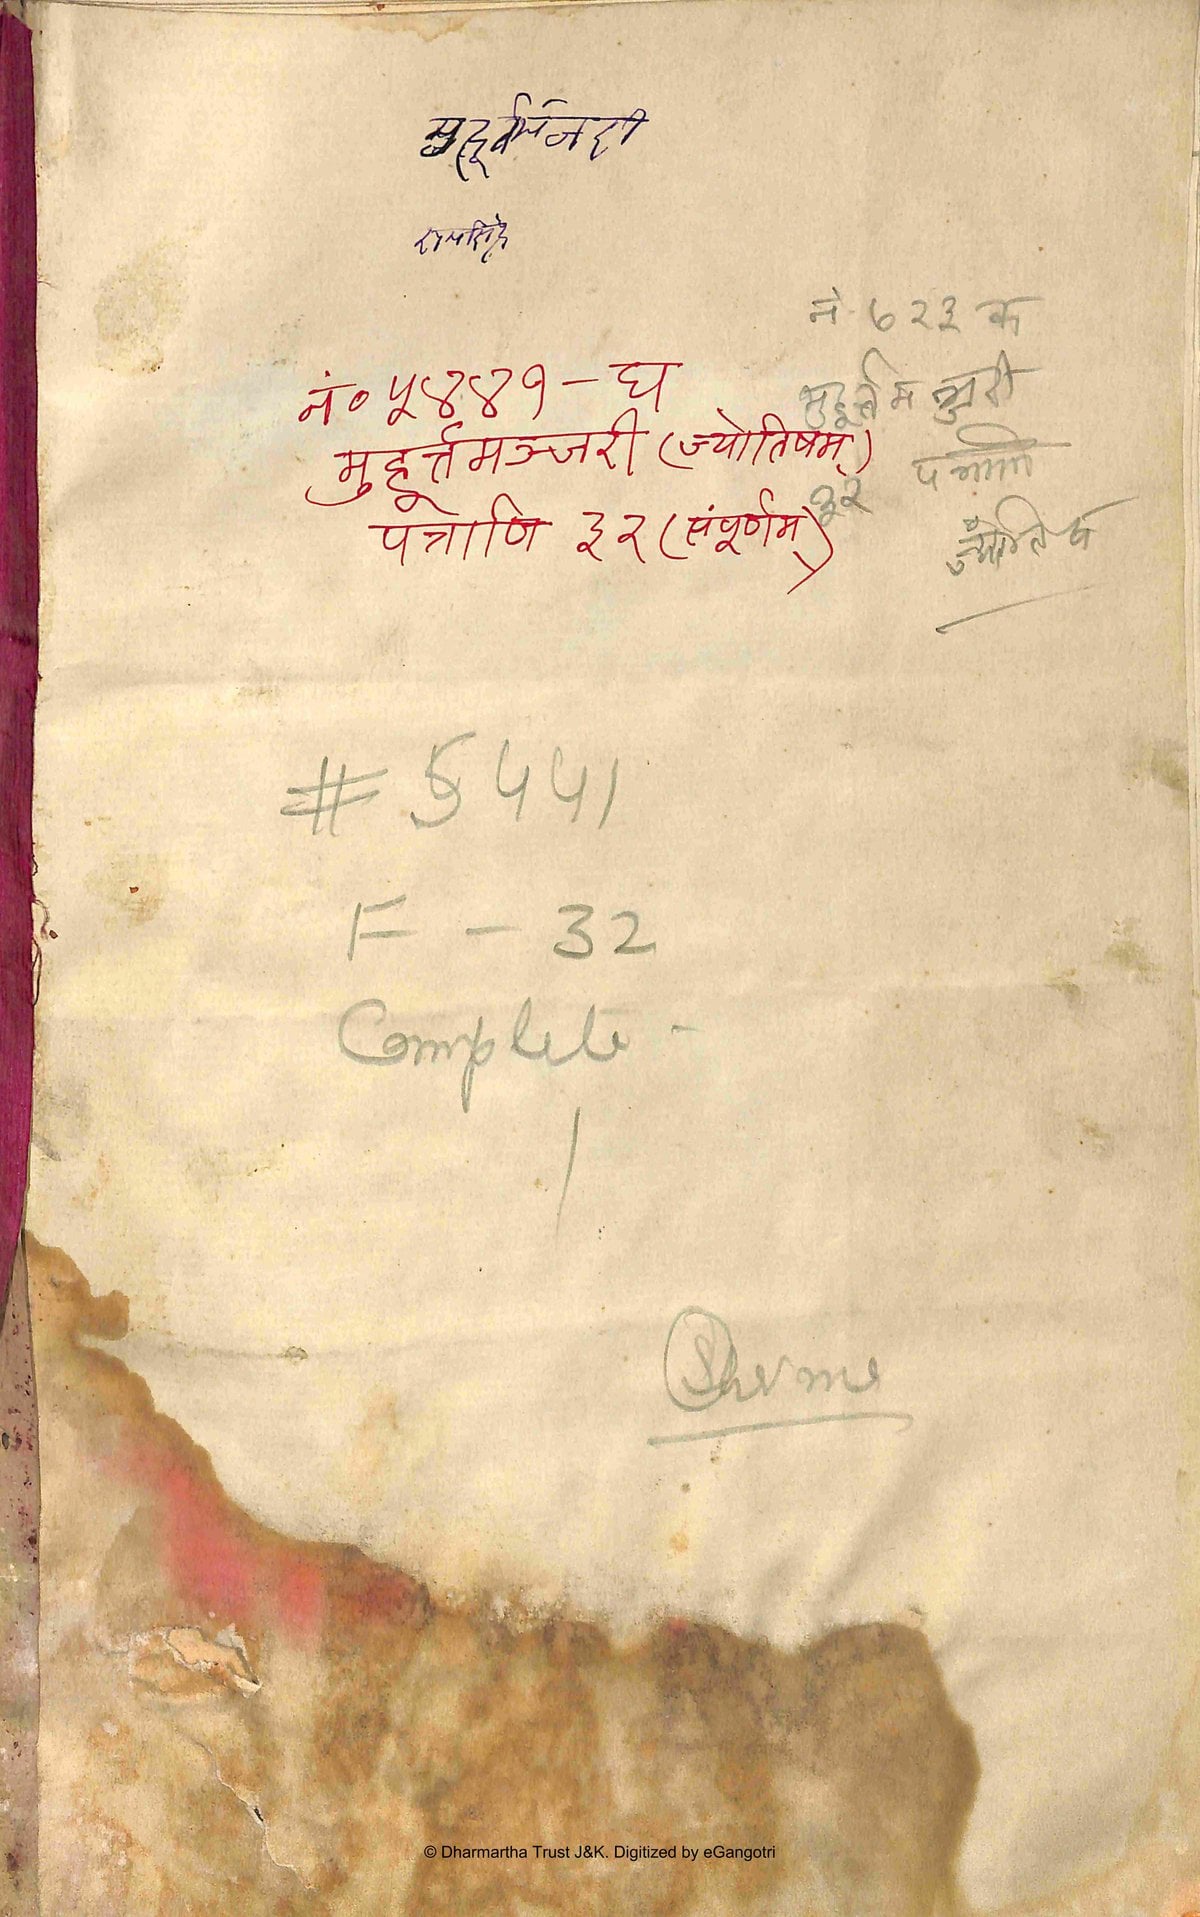 मुहूर्तमंजरी
रामसिंह
नं० ५४४१ - घ
मुहूर्त्तमञ्जरी (ज्योतिषम्)
पत्राणि ३२ (संपूर्णम्)
नं ७२३ क
मुहूर्त्तमञ्जरी
पत्राणि
३२
ज्योतिष
# 5441
F - 32
Complete -
© Dharmartha Trust J&K. Digitized by eGangotri